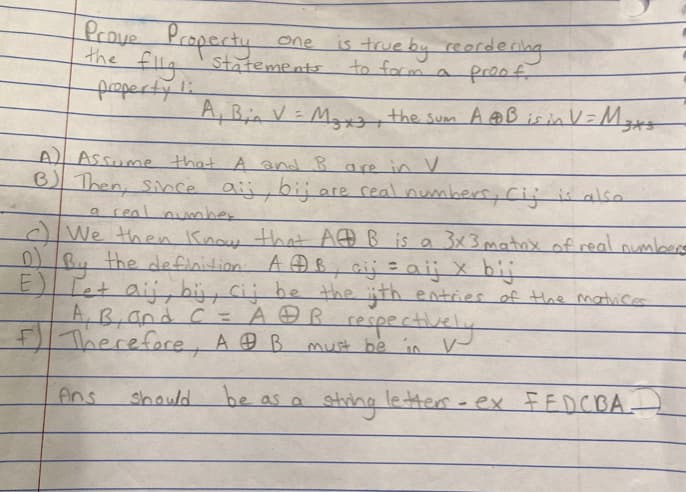 Prove Property one is true by reordering
the fllg statements to form a proof.
property 1:
A, B, in V = M3x3, the sum A ⊕ B is in V = M3x3
A) Assume that A and B are in V
B) Then, since aij, bij are real numbers, cij is also
a real number
C) We then know that A ⊕ B is a 3x3 matrix of real numbers
D) By the definition A ⊕ B, cij = aij x bij
E) Let aij, bij, cij be the ijth entries of the matrices
A, B, and C = A ⊕ B respectively
F) Therefore, A ⊕ B must be in V
Ans should be as a string letters - ex FEDCBA